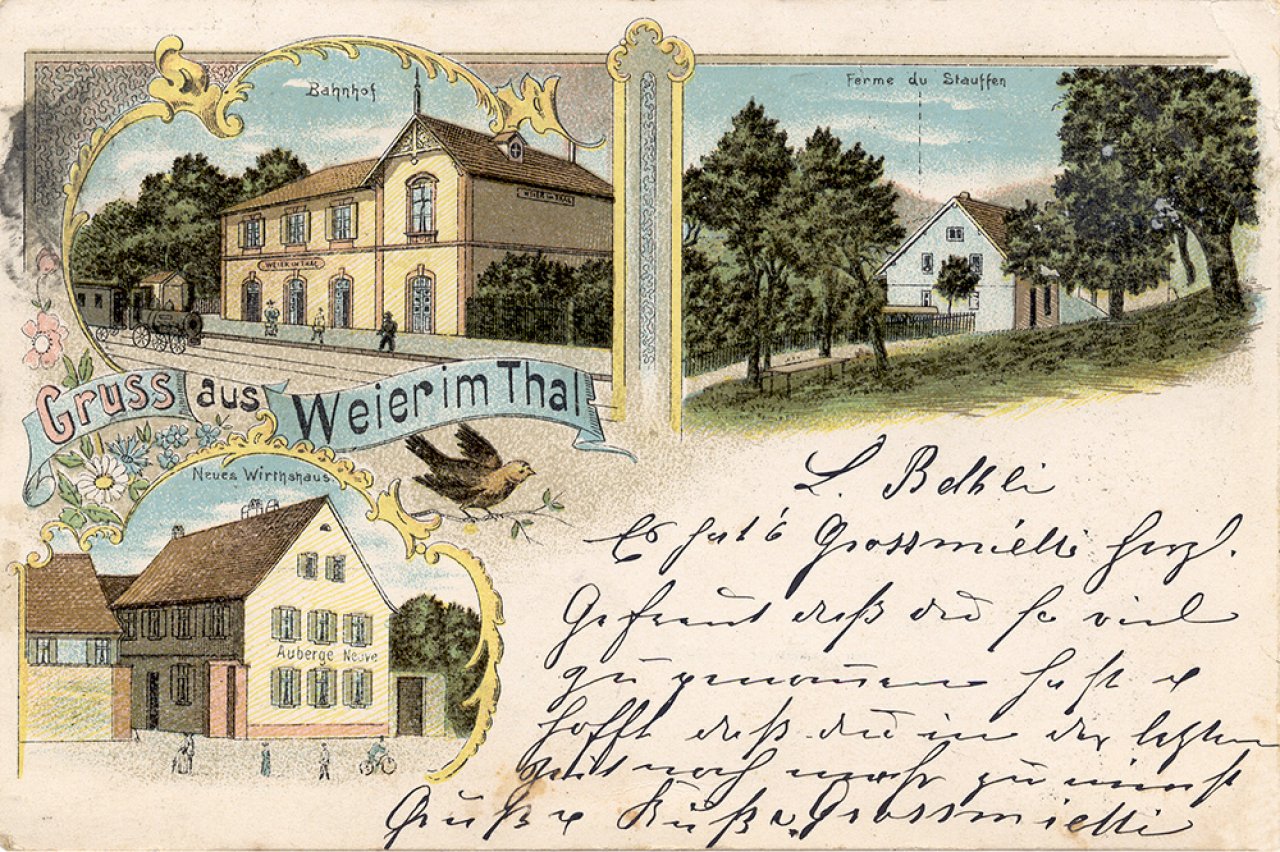 Bahnhof
WEIER IM THAL
WEIER IM THAL
Ferme du Stauffen
Gruss aus Weier im Thal
Neues Wirthshaus
Auberge Neuve
L. Bethli
Es hat's Grossmietti herzl.
Gefreut daß du so viel
zugenommen hast u
hofft daß du in der letzten
Zeit noch mehr zu nimst
Gruß u Kuß v. Grossmietti